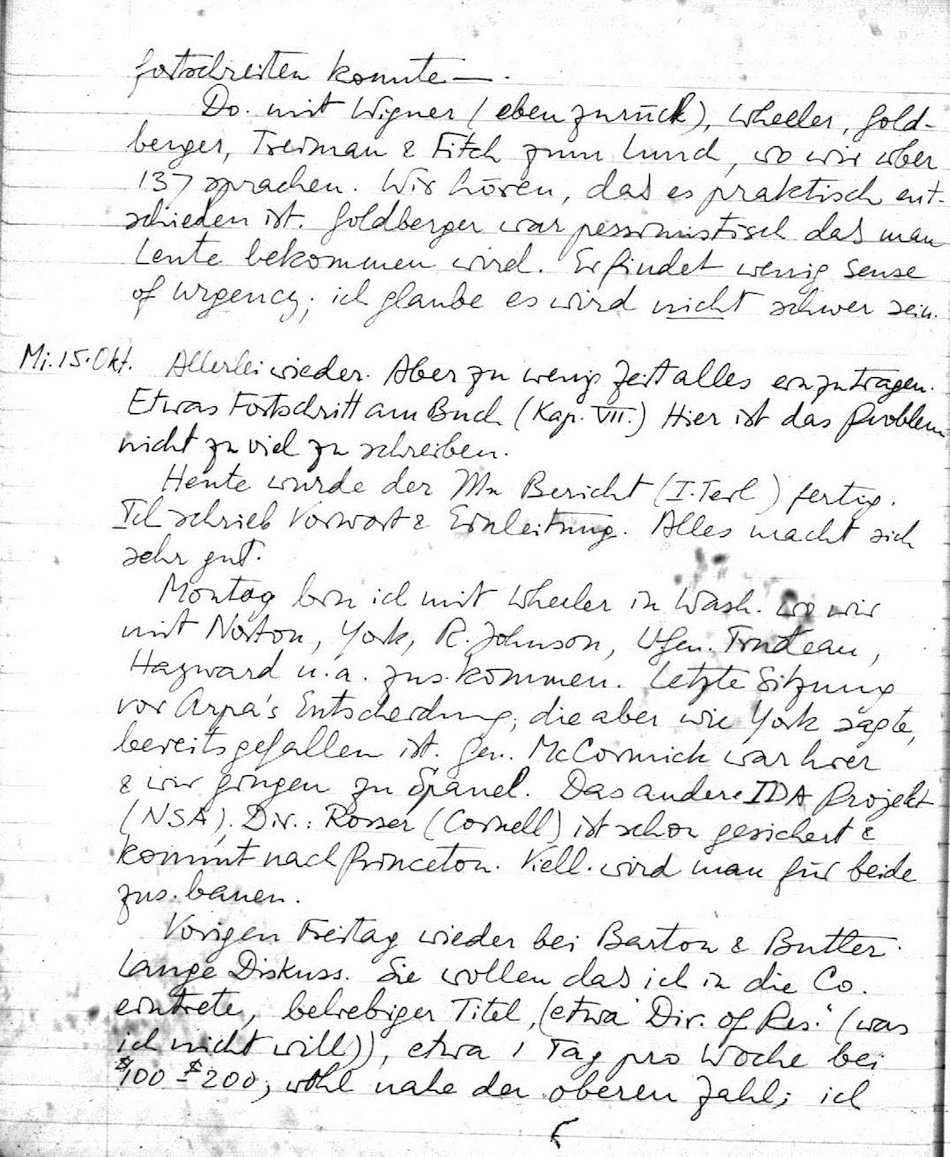 fortschreiten konnte—.
Do. mit Wigner (eben zurück), Wheeler, Gold-
berger, Treiman & Fitch zum Lunch, wo wir über
137 sprachen. Wir hören, das es praktisch ent-
schieden ist. Goldberger war pessimistisch das man
Leute bekommen wird. Er findet wenig sense
of urgency; ich glaube es wird nicht schwer sein.
Mi. 15. Okt. Allerlei wieder. Aber zu wenig Zeit alles einzutragen.
Etwas Fortschritt am Buch (Kap. VII.) Hier ist das Problem
nicht zu viel zu schreiben.
Heute wurde der Bericht (I. Teil) fertig.
Ich schrieb Vorwort & Einleitung. Alles macht sich
sehr gut.
Montag bin ich mit Wheeler in Wash. wo wir
mit Norton, York, R. Johnson, Trudeau,
Hayward u.a. zus. kommen. Letzte Sitzung
vor Arpa's Entscheidung, die aber wie York sagte,
bereits gefallen ist. Gen. McCormick war hier
& wir gingen zu Spanel. Das andere IDA Projekt
(NSA), Dir.: Rosser (Cornell) ist schon gesichert &
kommt nach Princeton. Viell. wird man für beide
zus. bauen.
Vorigen Freitag wieder bei Barton & Butler.
Lange Diskuss. Sie wollen das ich in die Co.
eintrete, beliebiger Titel, (etwa "Dir. of Res." (was
ich nicht will)), etwa 1 Tag pro Woche bei
$100 - $200, wohl nahe der oberen Zahl; ich